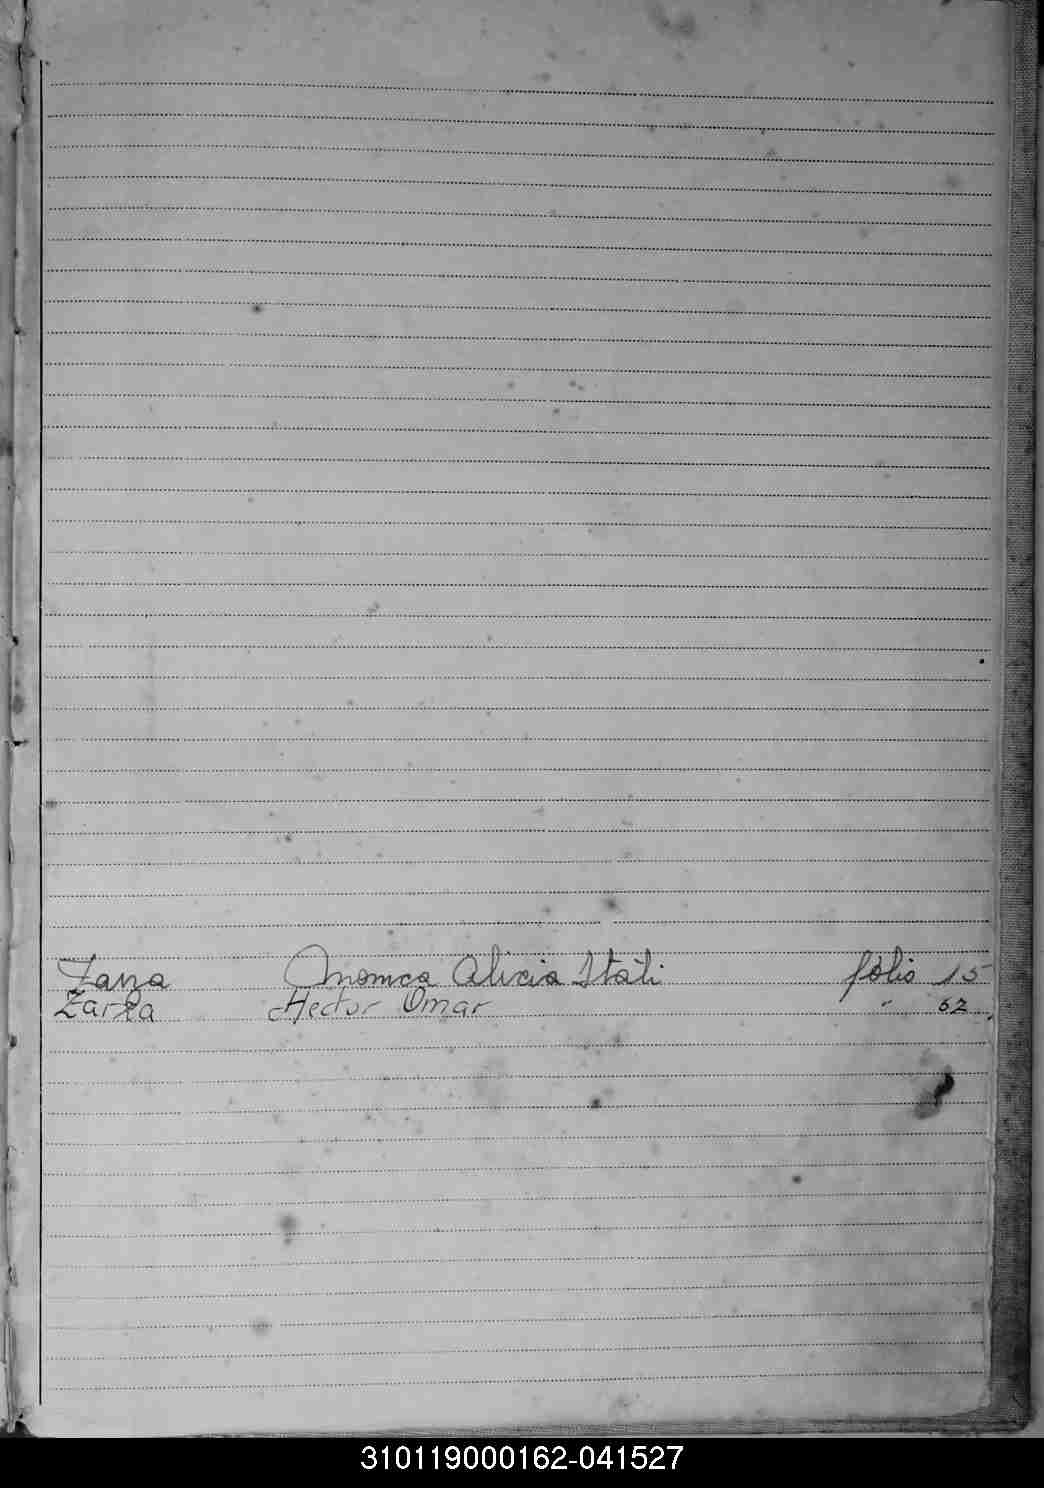 Zarza Monica Alicia Itáli folio 15
Zarza Hector Omar " 62
310119000162-041527